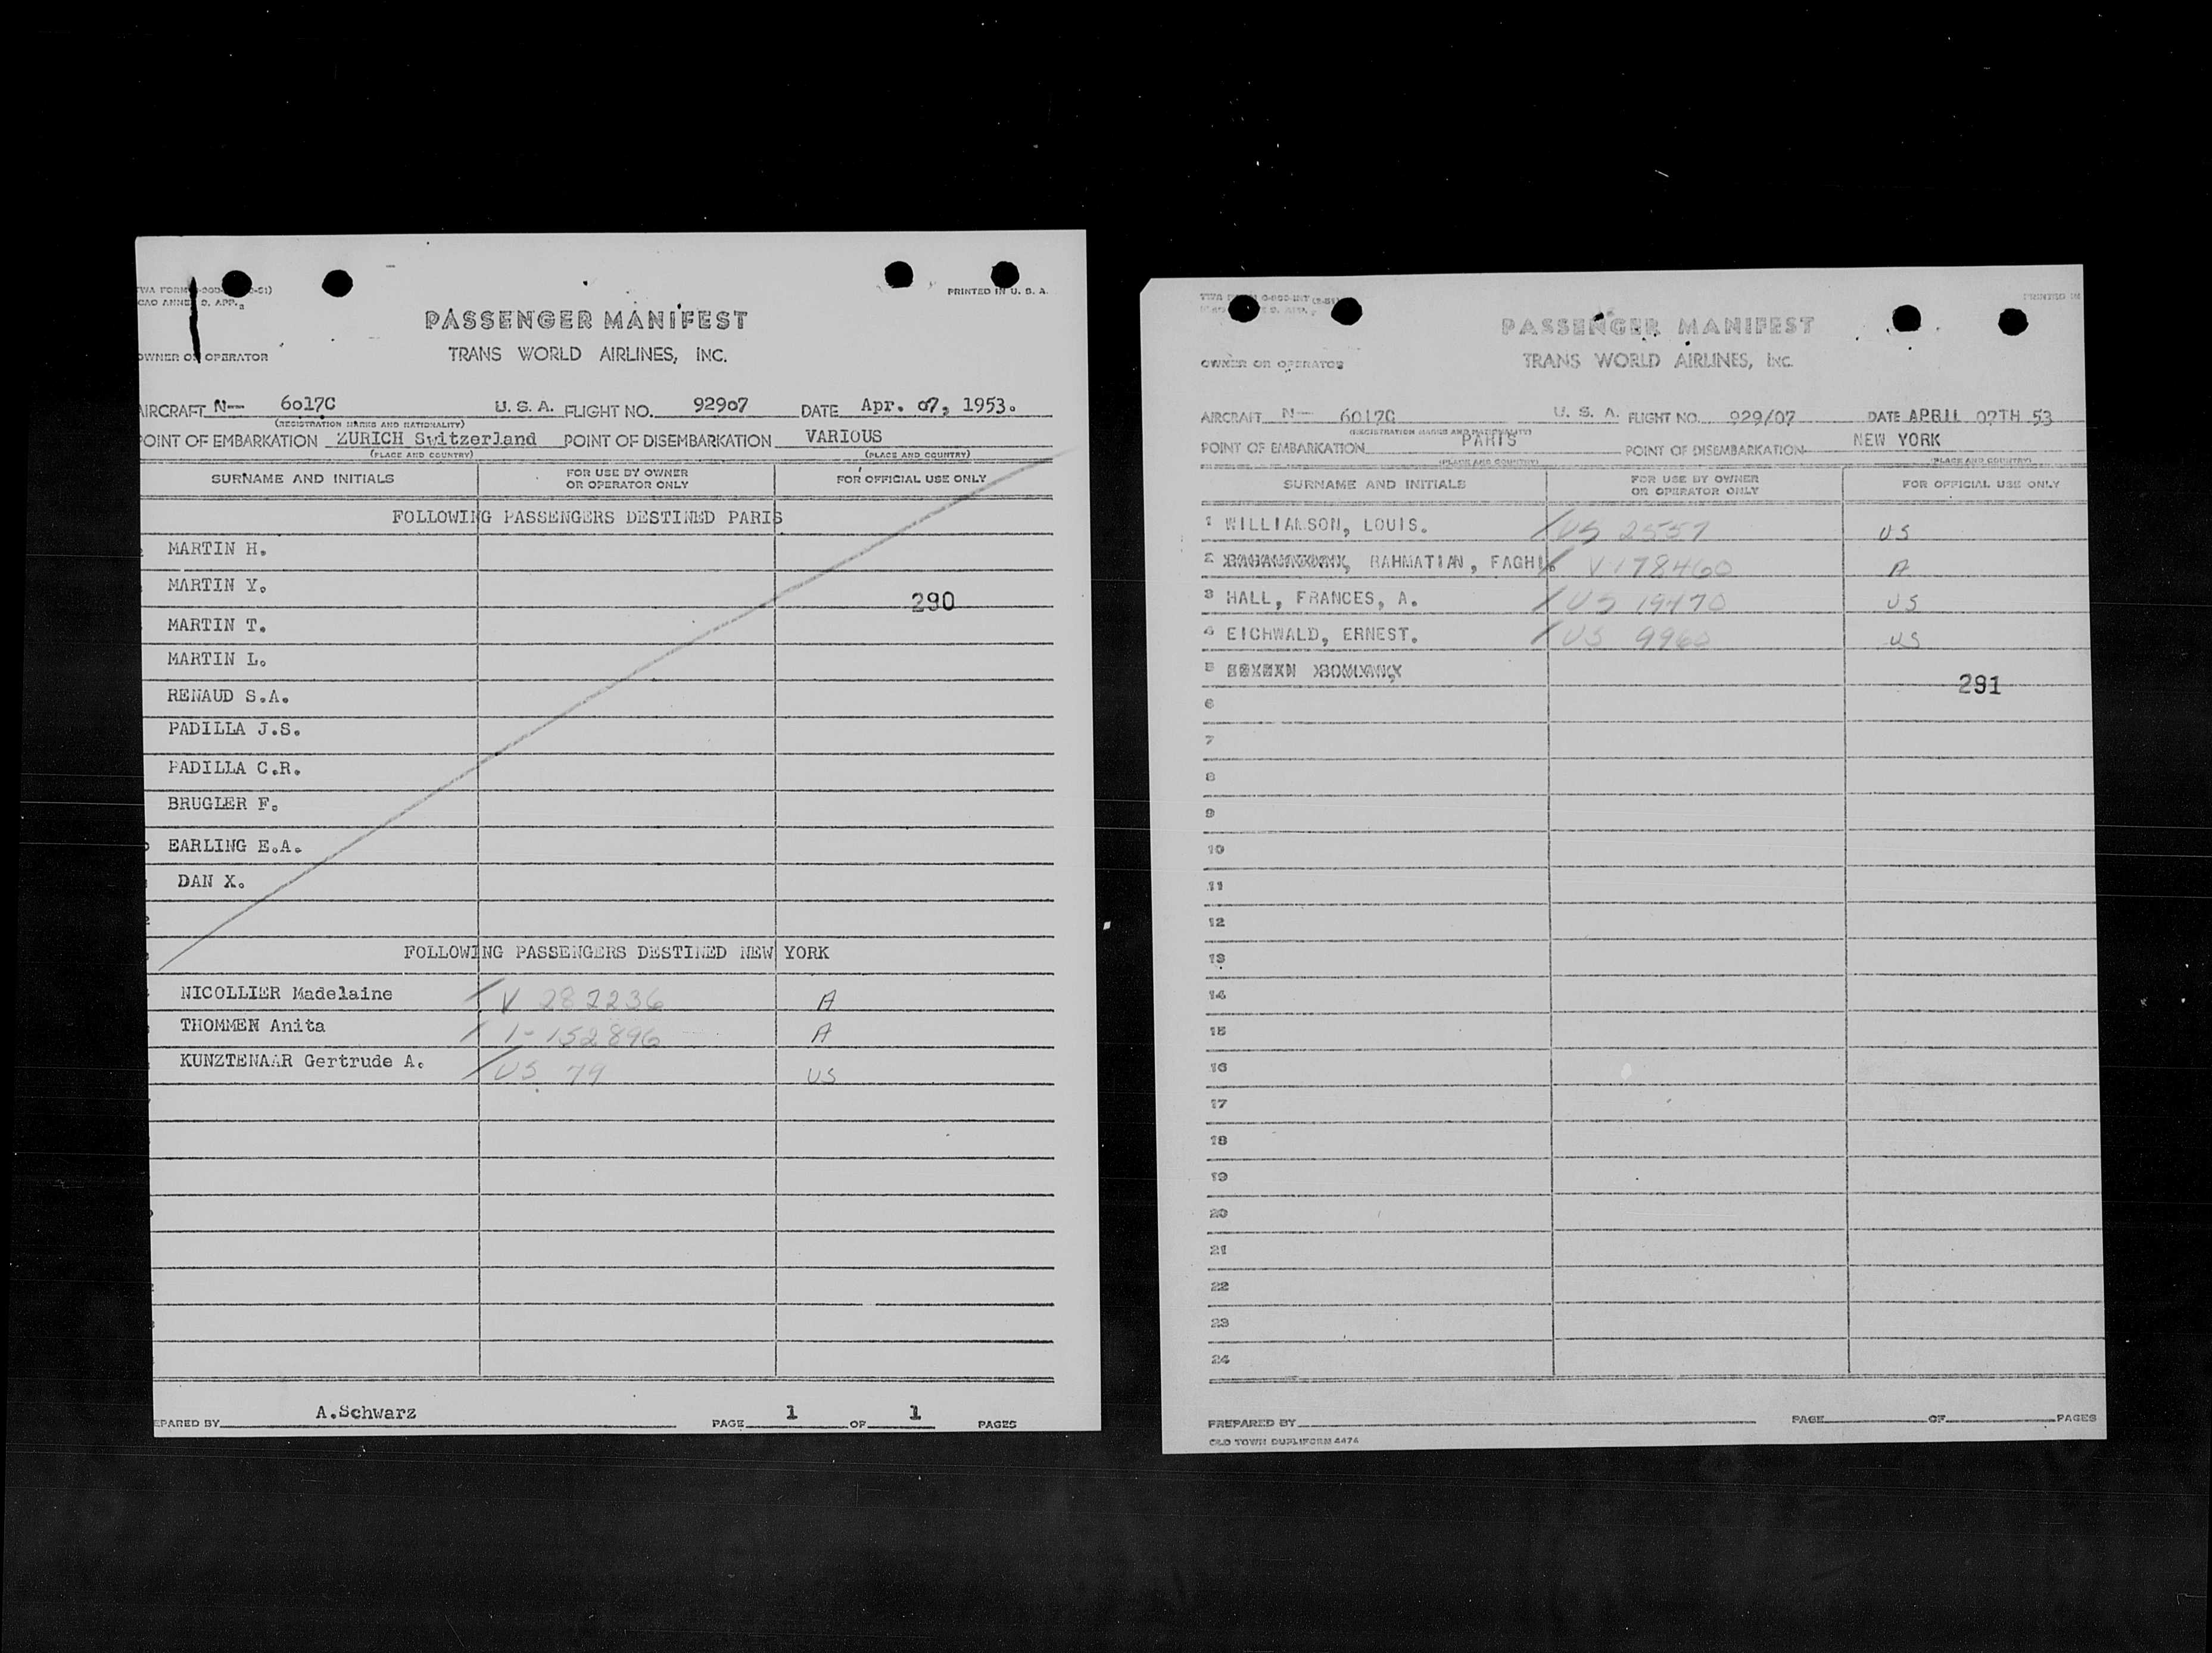 PRINTED IN U. S. A.
PASSENGER MANIFEST
TRANS WORLD AIRLINES, INC.
OWNER OR OPERATOR
AIRCRAFT N-- 6017C U. S. A. FLIGHT NO. 92907 DATE Apr. 07, 1953.
(REGISTRATION MARKS AND NATIONALITY)
POINT OF EMBARKATION ZURICH Switzerland POINT OF DISEMBARKATION VARIOUS
(PLACE AND COUNTRY) (PLACE AND COUNTRY)
SURNAME AND INITIALS FOR USE BY OWNER OR OPERATOR ONLY FOR OFFICIAL USE ONLY
FOLLOWING PASSENGERS DESTINED PARIS
MARTIN H.
MARTIN Y.
290
MARTIN T.
MARTIN L.
RENAUD S.A.
PADILLA J.S.
PADILLA C.R.
BRUGLER F.
EARLING E.A.
DAN X.
FOLLOWING PASSENGERS DESTINED NEW YORK
NICOLLIER Madelaine V 282236 A
THOMMEN Anita 152896 A
KUNZTENAAR Gertrude A. US 79 US
EPARED BY A.Schwarz PAGE 1 OF 1 PAGES
PRINTED IN
PASSENGER MANIFEST
TRANS WORLD AIRLINES, INC.
OWNER OR OPERATOR
AIRCRAFT N-- 6017C U. S. A. FLIGHT NO. 929/07 DATE APRIL 07TH 53
(REGISTRATION MARKS AND NATIONALITY)
POINT OF EMBARKATION PARIS POINT OF DISEMBARKATION NEW YORK
(PLACE AND COUNTRY) (PLACE AND COUNTRY)
SURNAME AND INITIALS FOR USE BY OWNER OR OPERATOR ONLY FOR OFFICIAL USE ONLY
1 WILLIAMSON, LOUIS. US 2557 US
2 RAHMATIAN, FAGHI. V 178460 A
3 HALL, FRANCES, A. US 19470 US
4 EICHWALD, ERNEST. US 9960 US
5
291
6
7
8
9
10
11
12
13
14
15
16
17
18
19
20
21
22
23
24
PREPARED BY PAGE OF PAGES
OLD TOWN DUPLIFORM 4474